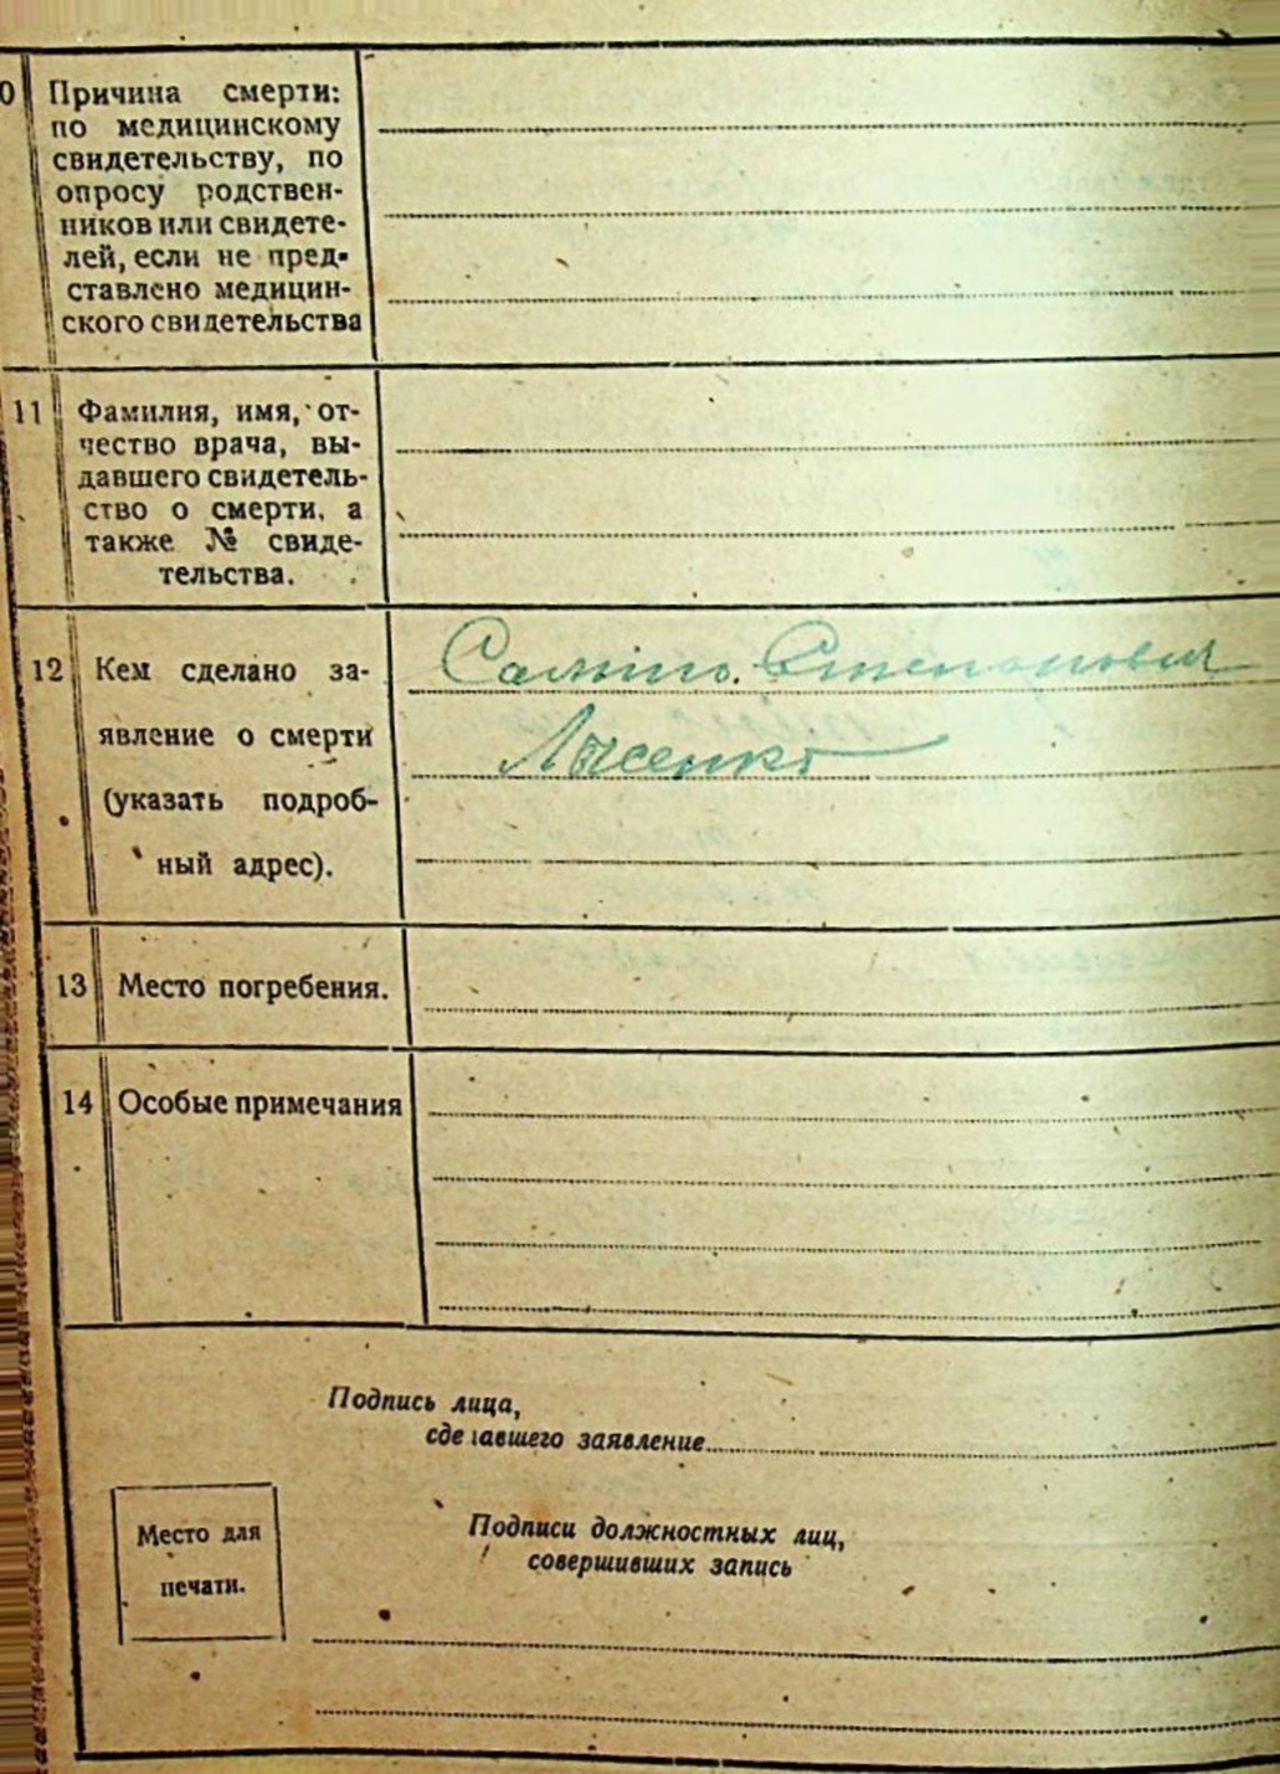 0 Причина смерти:
по медицинскому
свидетельству, по
опросу родствен-
ников или свидете-
лей, если не пред-
ставлено медицин-
ского свидетельства
11 Фамилия, имя, от-
чество врача, вы-
давшего свидетель-
ство о смерти, а
также № свиде-
тельства.
12 Кем сделано за-
явление о смерти
(указать подроб-
ный адрес).
Степанович
Лысенко
13 Место погребения.
14 Особые примечания
Подпись лица,
сделавшего заявление
Место для
печати.
Подписи должностных лиц,
совершивших запись